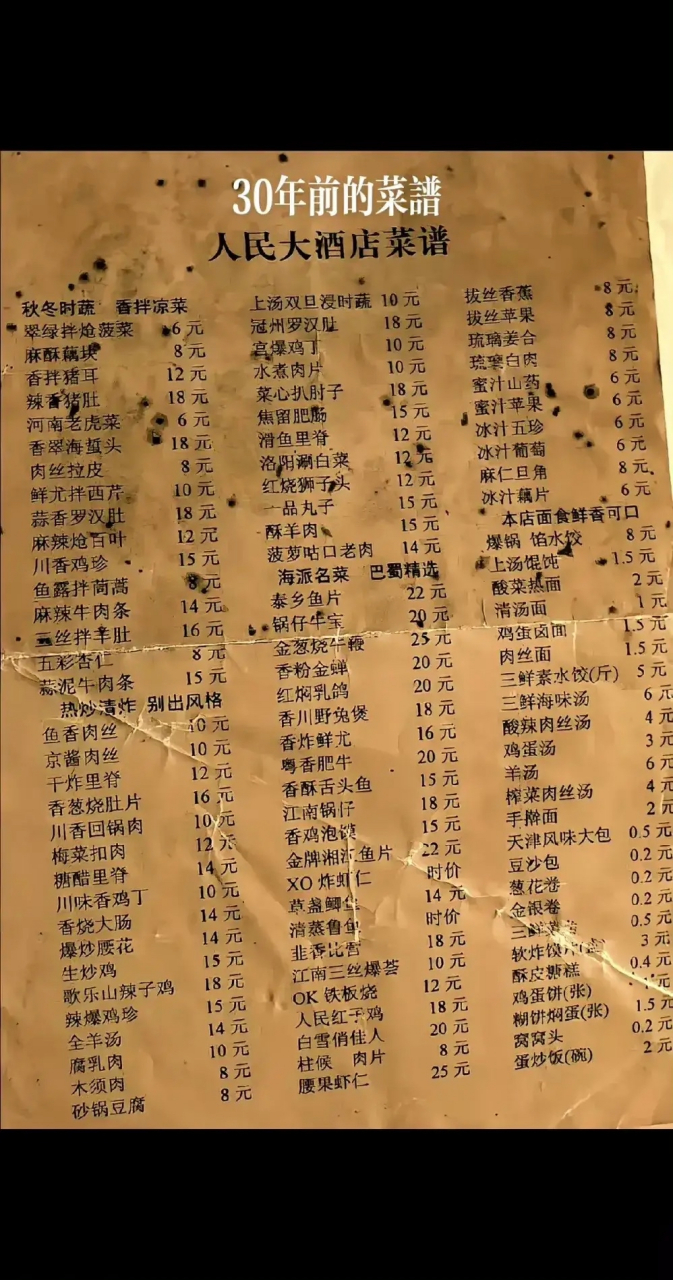 30年前的菜譜
人民大酒店菜谱
秋冬时蔬 香拌凉菜
翠绿拌炝菠菜 6元
麻酥藕块 8元
香拌猪耳 12元
辣香猪肚 18元
河南老虎菜 6元
香翠海蜇头 18元
肉丝拉皮 8元
鲜尤拌西芹 10元
蒜香罗汉肚 18元
麻辣炝百叶 12元
川香鸡珍 15元
鱼露拌茼蒿 8元
麻辣牛肉条 14元
三丝拌羊肚 16元
五彩杏仁 8元
蒜泥牛肉条 15元
热炒清炸 别出风格
鱼香肉丝 10元
京酱肉丝 10元
干炸里脊 12元
香葱烧肚片 16元
川香回锅肉 10元
梅菜扣肉 12元
糖醋里脊 14元
川味香鸡丁 10元
香烧大肠 14元
爆炒腰花 14元
生炒鸡 15元
歌乐山辣子鸡 18元
辣爆鸡珍 15元
全羊汤 14元
腐乳肉 10元
木须肉 8元
砂锅豆腐 8元
上汤双旦浸时蔬 10元
冠州罗汉肚 18元
宫爆鸡丁 10元
水煮肉片 10元
菜心扒肘子 18元
焦留肥肠 15元
滑鱼里脊 12元
洛阳涮白菜 12元
红烧狮子头 12元
一品丸子 15元
酥羊肉 15元
菠萝咕口老肉 14元
海派名菜 巴蜀精选
泰乡鱼片 22元
锅仔牛宝 20元
金葱烧牛鞭 25元
香粉金蝉 20元
红焖乳鸽 20元
香川野兔煲 18元
香炸鲜尤 16元
粤香肥牛 20元
香酥舌头鱼 15元
江南锅仔 18元
香鸡泡馍 15元
金牌湘江鱼片 22元
XO炸虾仁 时价
草盏鲫鱼 14元
清蒸鲁鱼 时价
韭香比管 18元
江南三丝爆荟 10元
OK铁板烧 12元
人民红干鸡 18元
白雪俏佳人 20元
柱候 肉片 8元
腰果虾仁 25元
拔丝香蕉 8元
拔丝苹果 8元
琉璃姜合 8元
琉璃白肉 8元
蜜汁山药 6元
蜜汁苹果 6元
冰汁五珍 6元
冰汁葡萄 6元
麻仁旦角 8元
冰汁藕片 6元
本店面食鲜香可口
爆锅 馅水饺 8元
上汤馄饨 1.5元
酸菜热面 2元
清汤面 1元
鸡蛋卤面 1.5元
肉丝面 1.5元
三鲜素水饺(斤) 5元
三鲜海味汤 6元
酸辣肉丝汤 4元
鸡蛋汤 3元
羊汤 6元
榨菜肉丝汤 4元
手擀面 2元
天津风味大包 0.5元
豆沙包 0.2元
葱花卷 0.2元
金银卷 0.2元
三鲜 0.5元
软炸馍片 3元
酥皮糖糕 0.4元
鸡蛋饼(张)
糊饼焖蛋(张) 1.5元
窝窝头 0.2元
蛋炒饭(碗) 2元